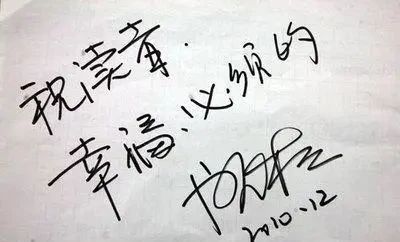 祝读者
幸福,必须的
2010.12